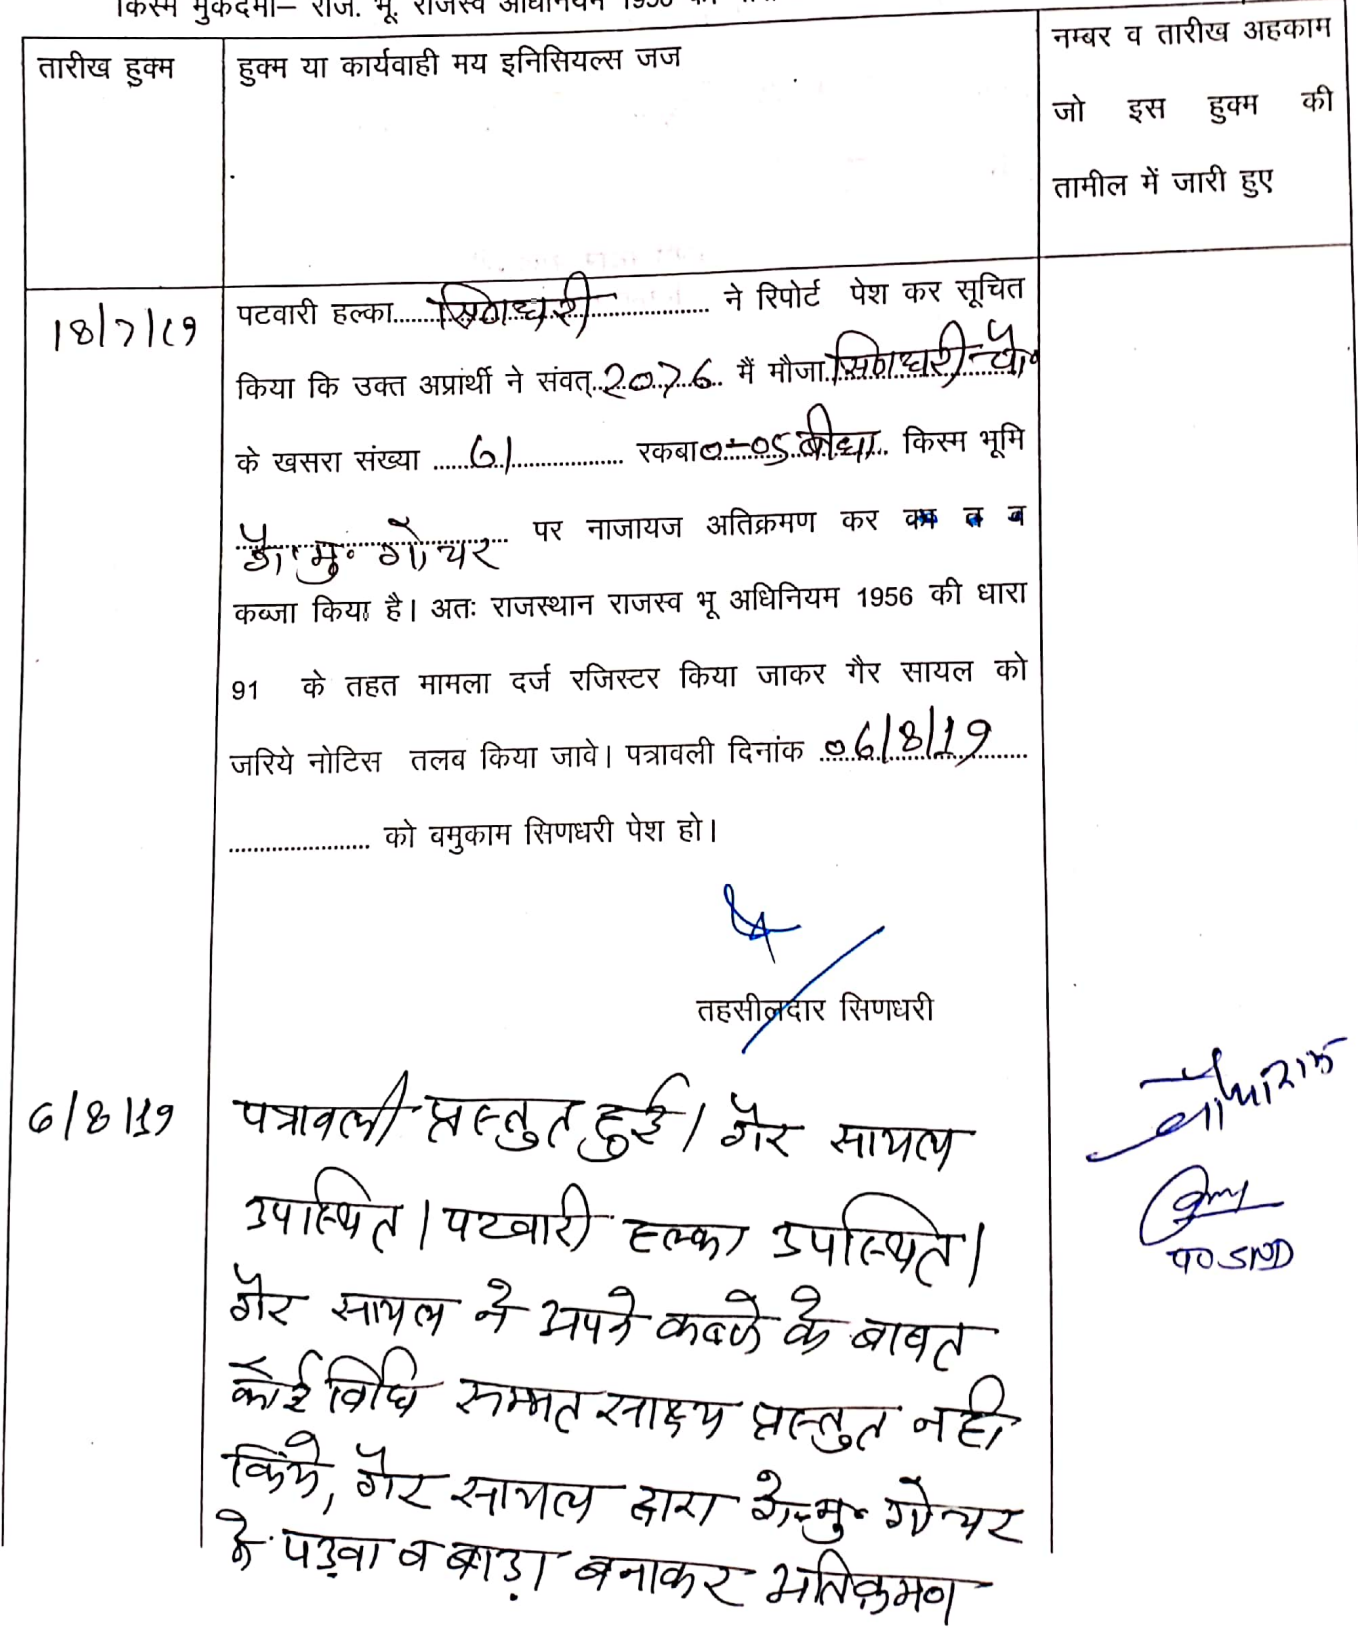 किस्म मुकदमा– राज. भू. राजस्व अधिनियम 1956 की
तारीख हुक्म
हुक्म या कार्यवाही मय इनिसियल्स जज
नम्बर व तारीख अहकाम
जो इस हुक्म की
तामील में जारी हुए
18/7/19
पटवारी हल्का......सिणधरी............... ने रिपोर्ट पेश कर सूचित
किया कि उक्त अप्रार्थी ने संवत् 2076 मैं मौजा सिणधरी चौ०
के खसरा संख्या ......61............ रकबा 0-05 बीघा किस्म भूमि
गै॰मु॰ गोचर पर नाजायज अतिक्रमण कर
कब्जा किया है। अतः राजस्थान राजस्व भू अधिनियम 1956 की धारा
91 के तहत मामला दर्ज रजिस्टर किया जाकर गैर सायल को
जरिये नोटिस तलब किया जावे। पत्रावली दिनांक 06/8/19
....................... को वमुकाम सिणधरी पेश हो।
तहसीलदार सिणधरी
6/8/19
पत्रावली प्रस्तुत हुई। गैर सायल
उपस्थित। पटवारी हल्का उपस्थित।
गैर सायल ने अपने कब्जे के बाबत
कोई विधि सम्मत साक्ष्य प्रस्तुत नही
किये, गैर सायल द्वारा गै॰मु॰ गोचर
मे पड़वा व बाड़ा बनाकर अतिक्रमण